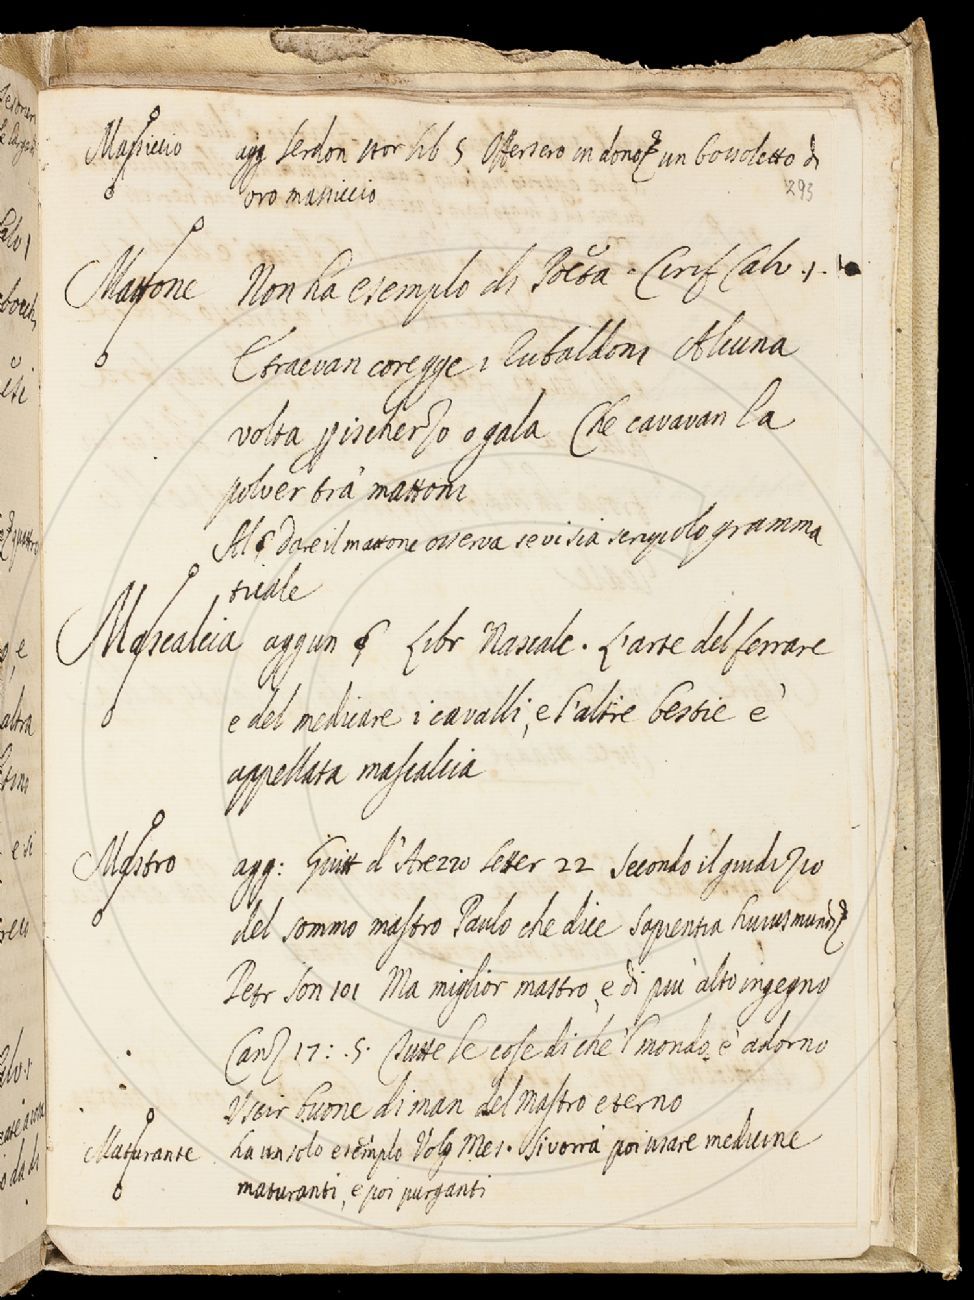 Massiccio agg Serdon stor lib 5 Offersero in dono un bossoletto di
oro massiccio
293
Mattone Non ha esempio di Poeta. Cirif Calv. 1.
E traevan coregge i rubaldoni Alcuna
volta p ischerzo o gala Che cavavan la
polver tra mattoni
Al § Dare il mattone osserva se vi sia scrupolo gramma
ticale
Mascalcia aggiun § Libr Mascalc. L'arte del ferrare
e del medicare i cavalli, e l'altre bestie è
appellata mascalcia
Mastro agg: Guitt d'Arezzo Letter 22 Secondo il giudizio
del sommo mastro Paulo che dice Sapientia huius mundi
Petr Son 101 Ma miglior mastro, e di più alto ingegno
Canz 17: .5. Tutte le cose di che 'l mondo è adorno
Uscir buone di man del Mastro eterno
Maturante ha un solo esemplo Volg Mes. Si vorrà poi usare medicine
maturanti, e poi purganti